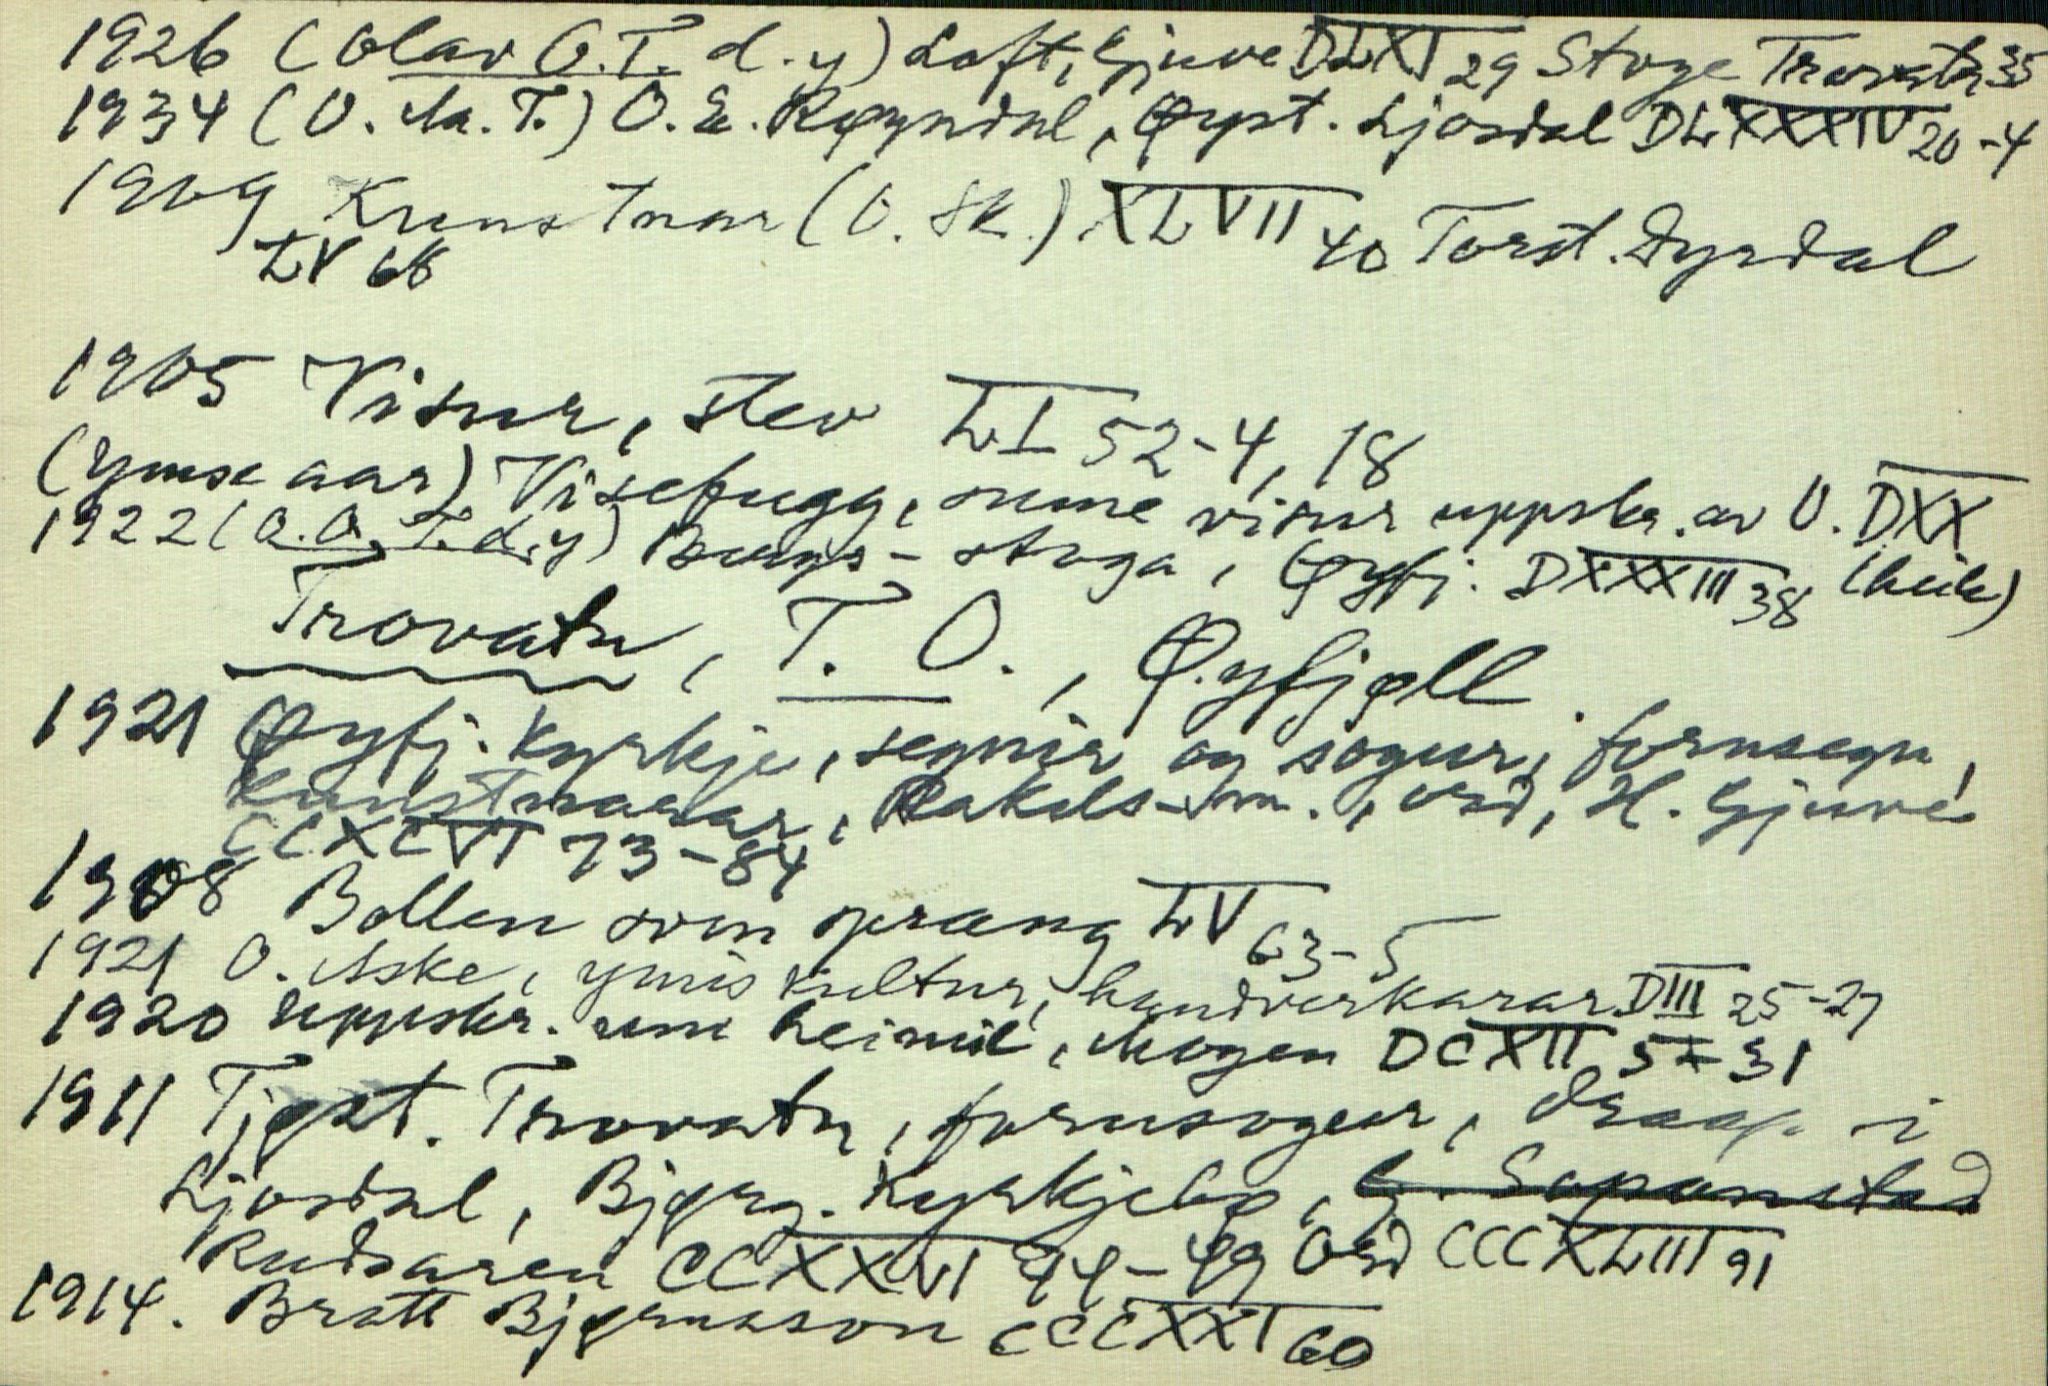 1926 (Olav O.T. d.y) Loft, Gjuve DLXI 29 Stoge Trovatn 35
1934 (O. Aa. T.) O. E. Røyndal, Øyst. Ljosdal DLXXXIV 20-4
1909 Kunstnar (O. Sk.) XLVII 40 Torst. Dyrdal
LV 66
1905 Visur, stev LI 52-4, 18
(Ymse aar) Visebugg, sume visur uppskr. av O. DXX
1922 (O.O.T.d.y) Burs-stoga, Øyfj. DXXXIII 38 (heile)
Trovatn, T. O., Øyfjøll.
1921 Øyfj. Kyrkje, segnir og sogur, fornsegn,
kunstnarar, Rakels-m., ord, H. Gjuve
CCXCVI 73-84
1908 Bollen som sprang LV 63-5
1921 O. Aske, ymis kultur, handverkarar DIII 25-27
1920 Uppskr. um heimil, Mogen DCXII 5-31
1911 Tjøst. Trovatn, fornsogur, Draap i
Ljosdal, Bjørg. Kyrkjebø,
Rudsaren CCXXVI 44-49 Ord CCCXLIII 91
1914. Bratt Bjørnsson CCCXXI 60